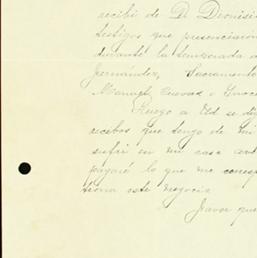 recibí de D. Dionisio
testigos que presenciaron
durante la temporada a
Fernández, Sacramento
Manuel Cuevas o Inoce
Ruego a Ud se di
recibos que tengo de mi
sufrí en mi casa ant
pagaré lo que me corresp
este negocio
Favor que